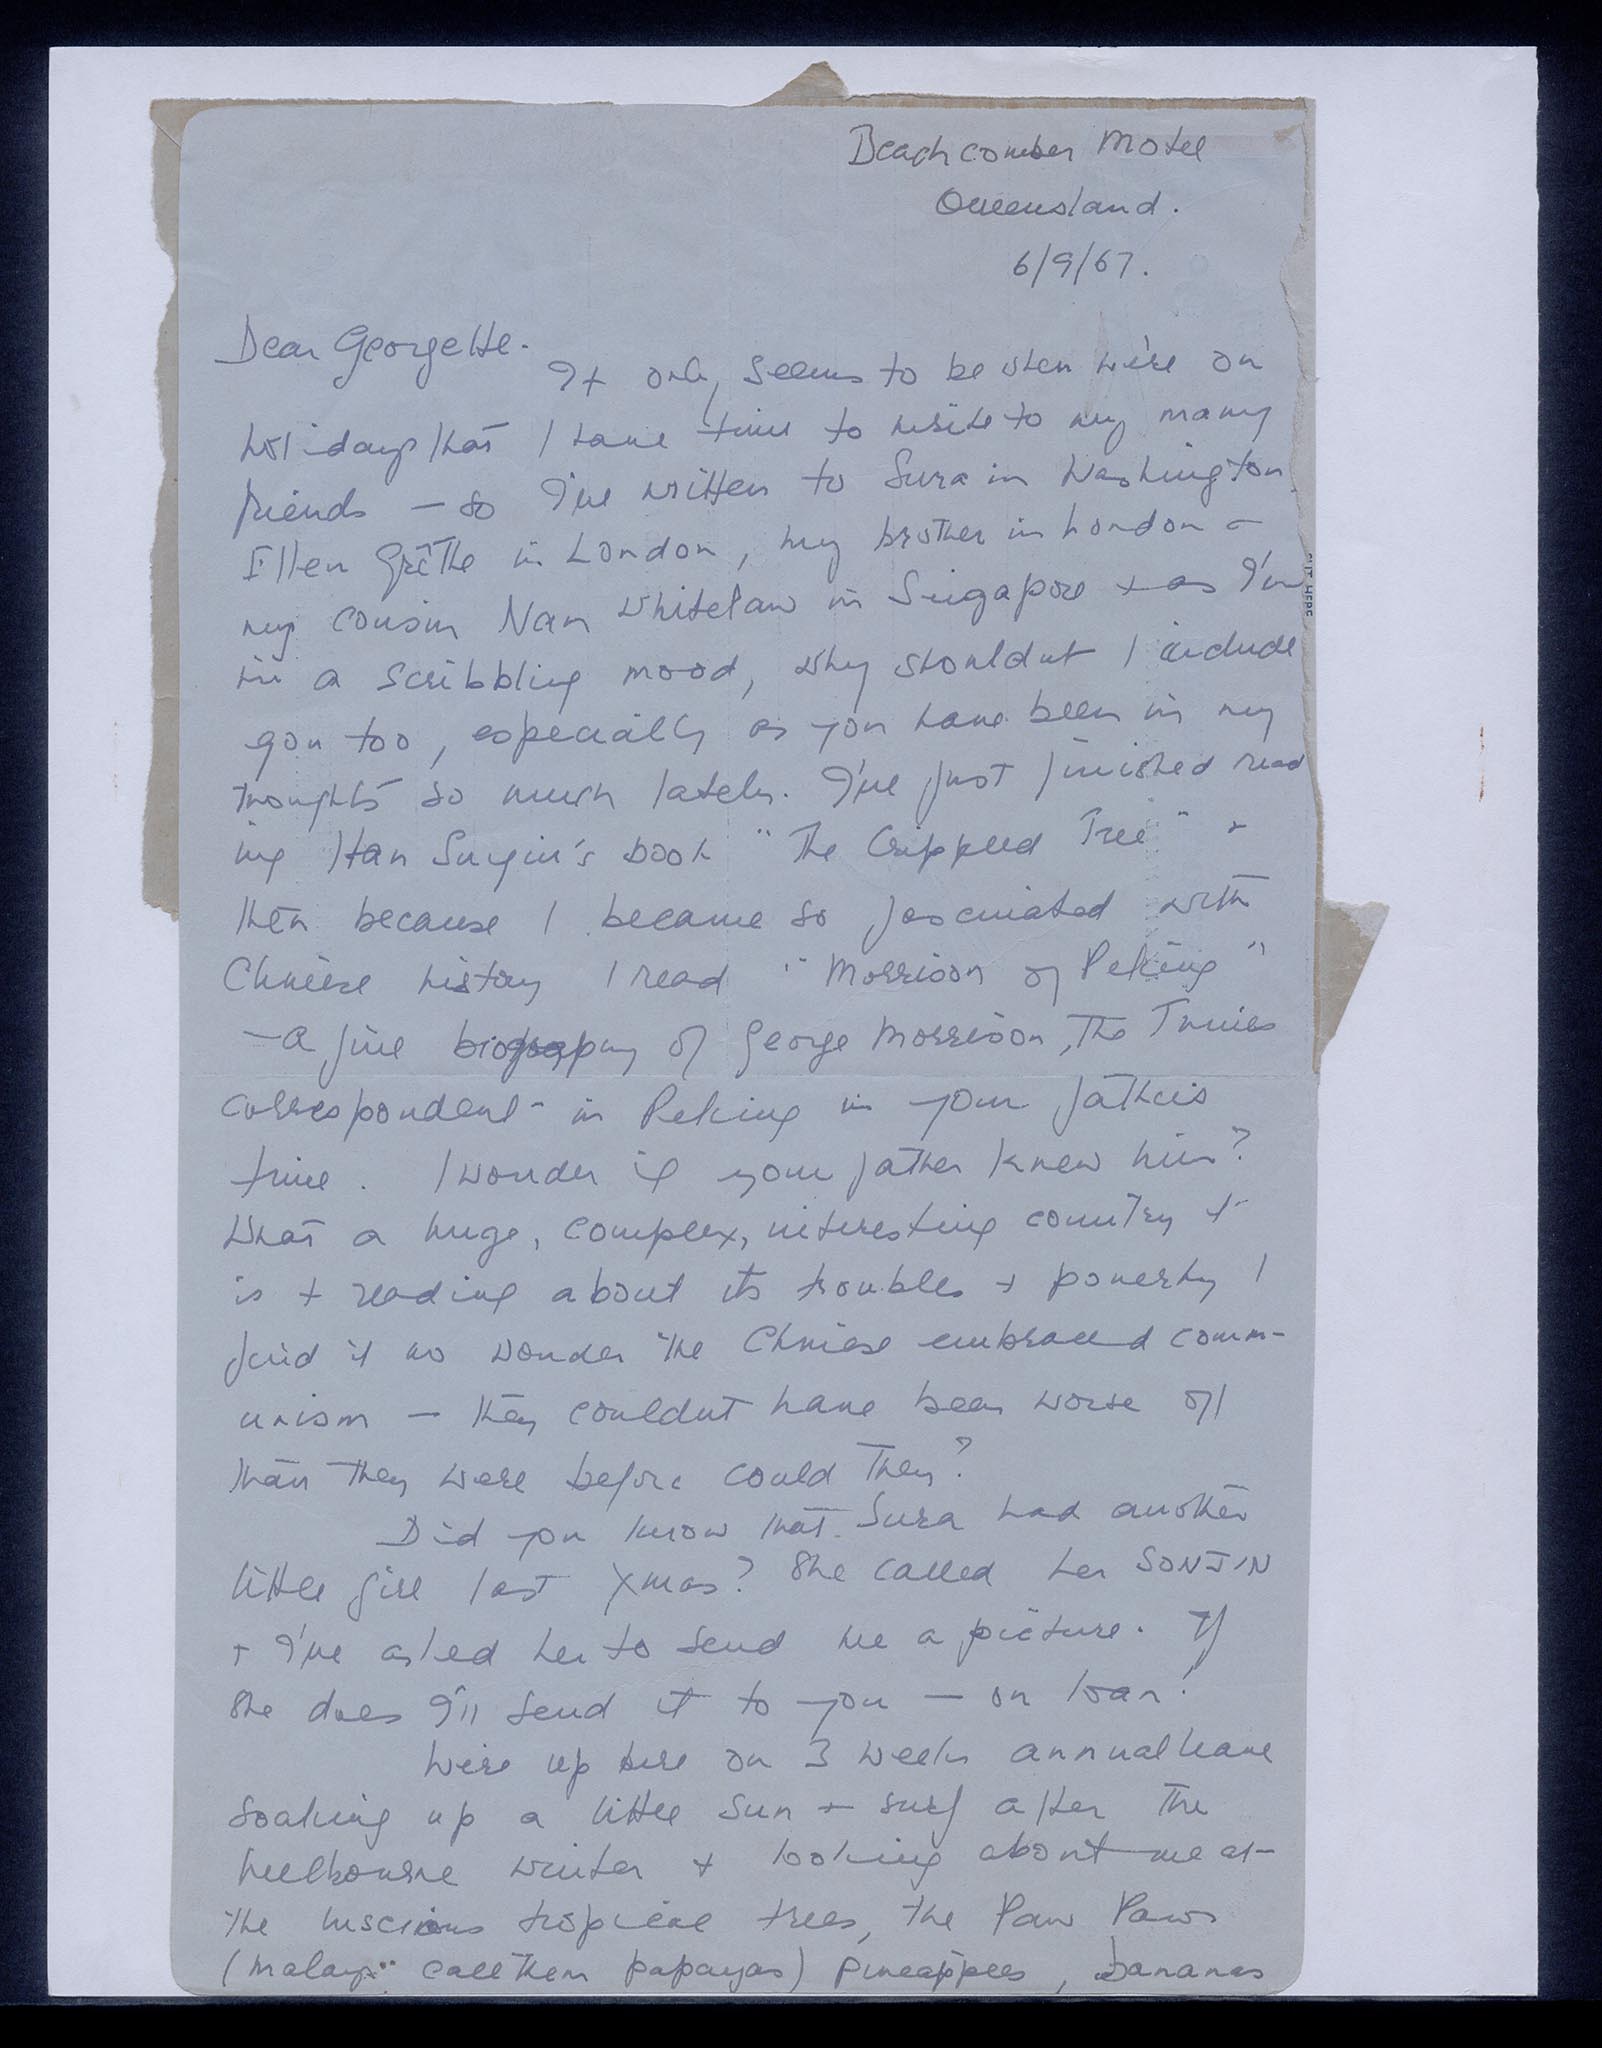 Beachcomber Motel
Queensland.
6/9/67.
Dear Georgette.
It only seems to be when we're on
holidays that I have time to write to my many
friends — so I've written to Sura in Washington,
Ellen Grethe in London, my brother in London &
my cousin Nan Whitelaw in Singapore + as I'm
in a scribbling mood, why shouldnt I include
you too, especially as you have been in my
thoughts so much lately. I've just finished read
ing Han Suyin's book "The Crippled Tree" +
then because I became so fascinated with
Chinese history I read "Morrison of Peking"
— a fine biography of George Morrison, The Times
correspondent in Peking in your father's
time. I wonder if your father knew him?
What a huge, complex, interesting country it
is + reading about its troubles + poverty I
find it no wonder the Chinese embraced comm-
unism — they couldnt have been worse off
than they were before could they?
Did you know that Sura had another
little girl last Xmas? She called her SONJIN
+ I've asked her to send me a picture. If
she does I'll send it to you — on loan!
We're up here on 3 weeks annual leave
soaking up a little sun + surf after the
Melbourne winter + looking about me at
the luscious tropical trees, the Paw Paws
(Malays call them papayas) pineapples, bananas
CUT HERE